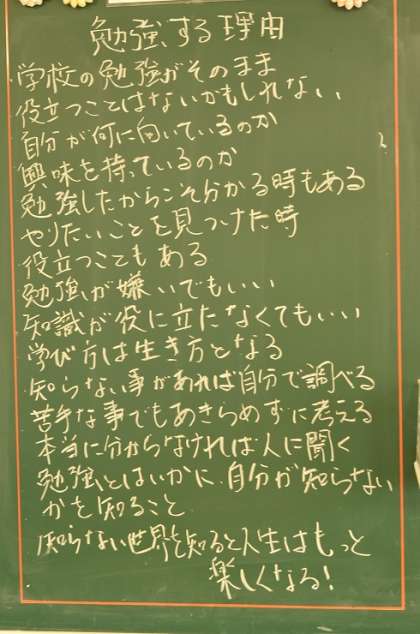 勉強する理由
学校の勉強がそのまま
役立つことはないかもしれない
自分が何に向いているのか
興味を持っているのか
勉強したからこそ分かる時もある
やりたいことを見つけた時
役立つこともある
勉強が嫌いでもいい
知識が役に立たなくてもいい
学び方は生き方となる
知らない事があれば自分で調べる
苦手な事でもあきらめずに考える
本当に分からなければ人に聞く
勉強とはいかに自分が知らない
かを知ること
知らない世界を知ると人生はもっと
楽しくなる!